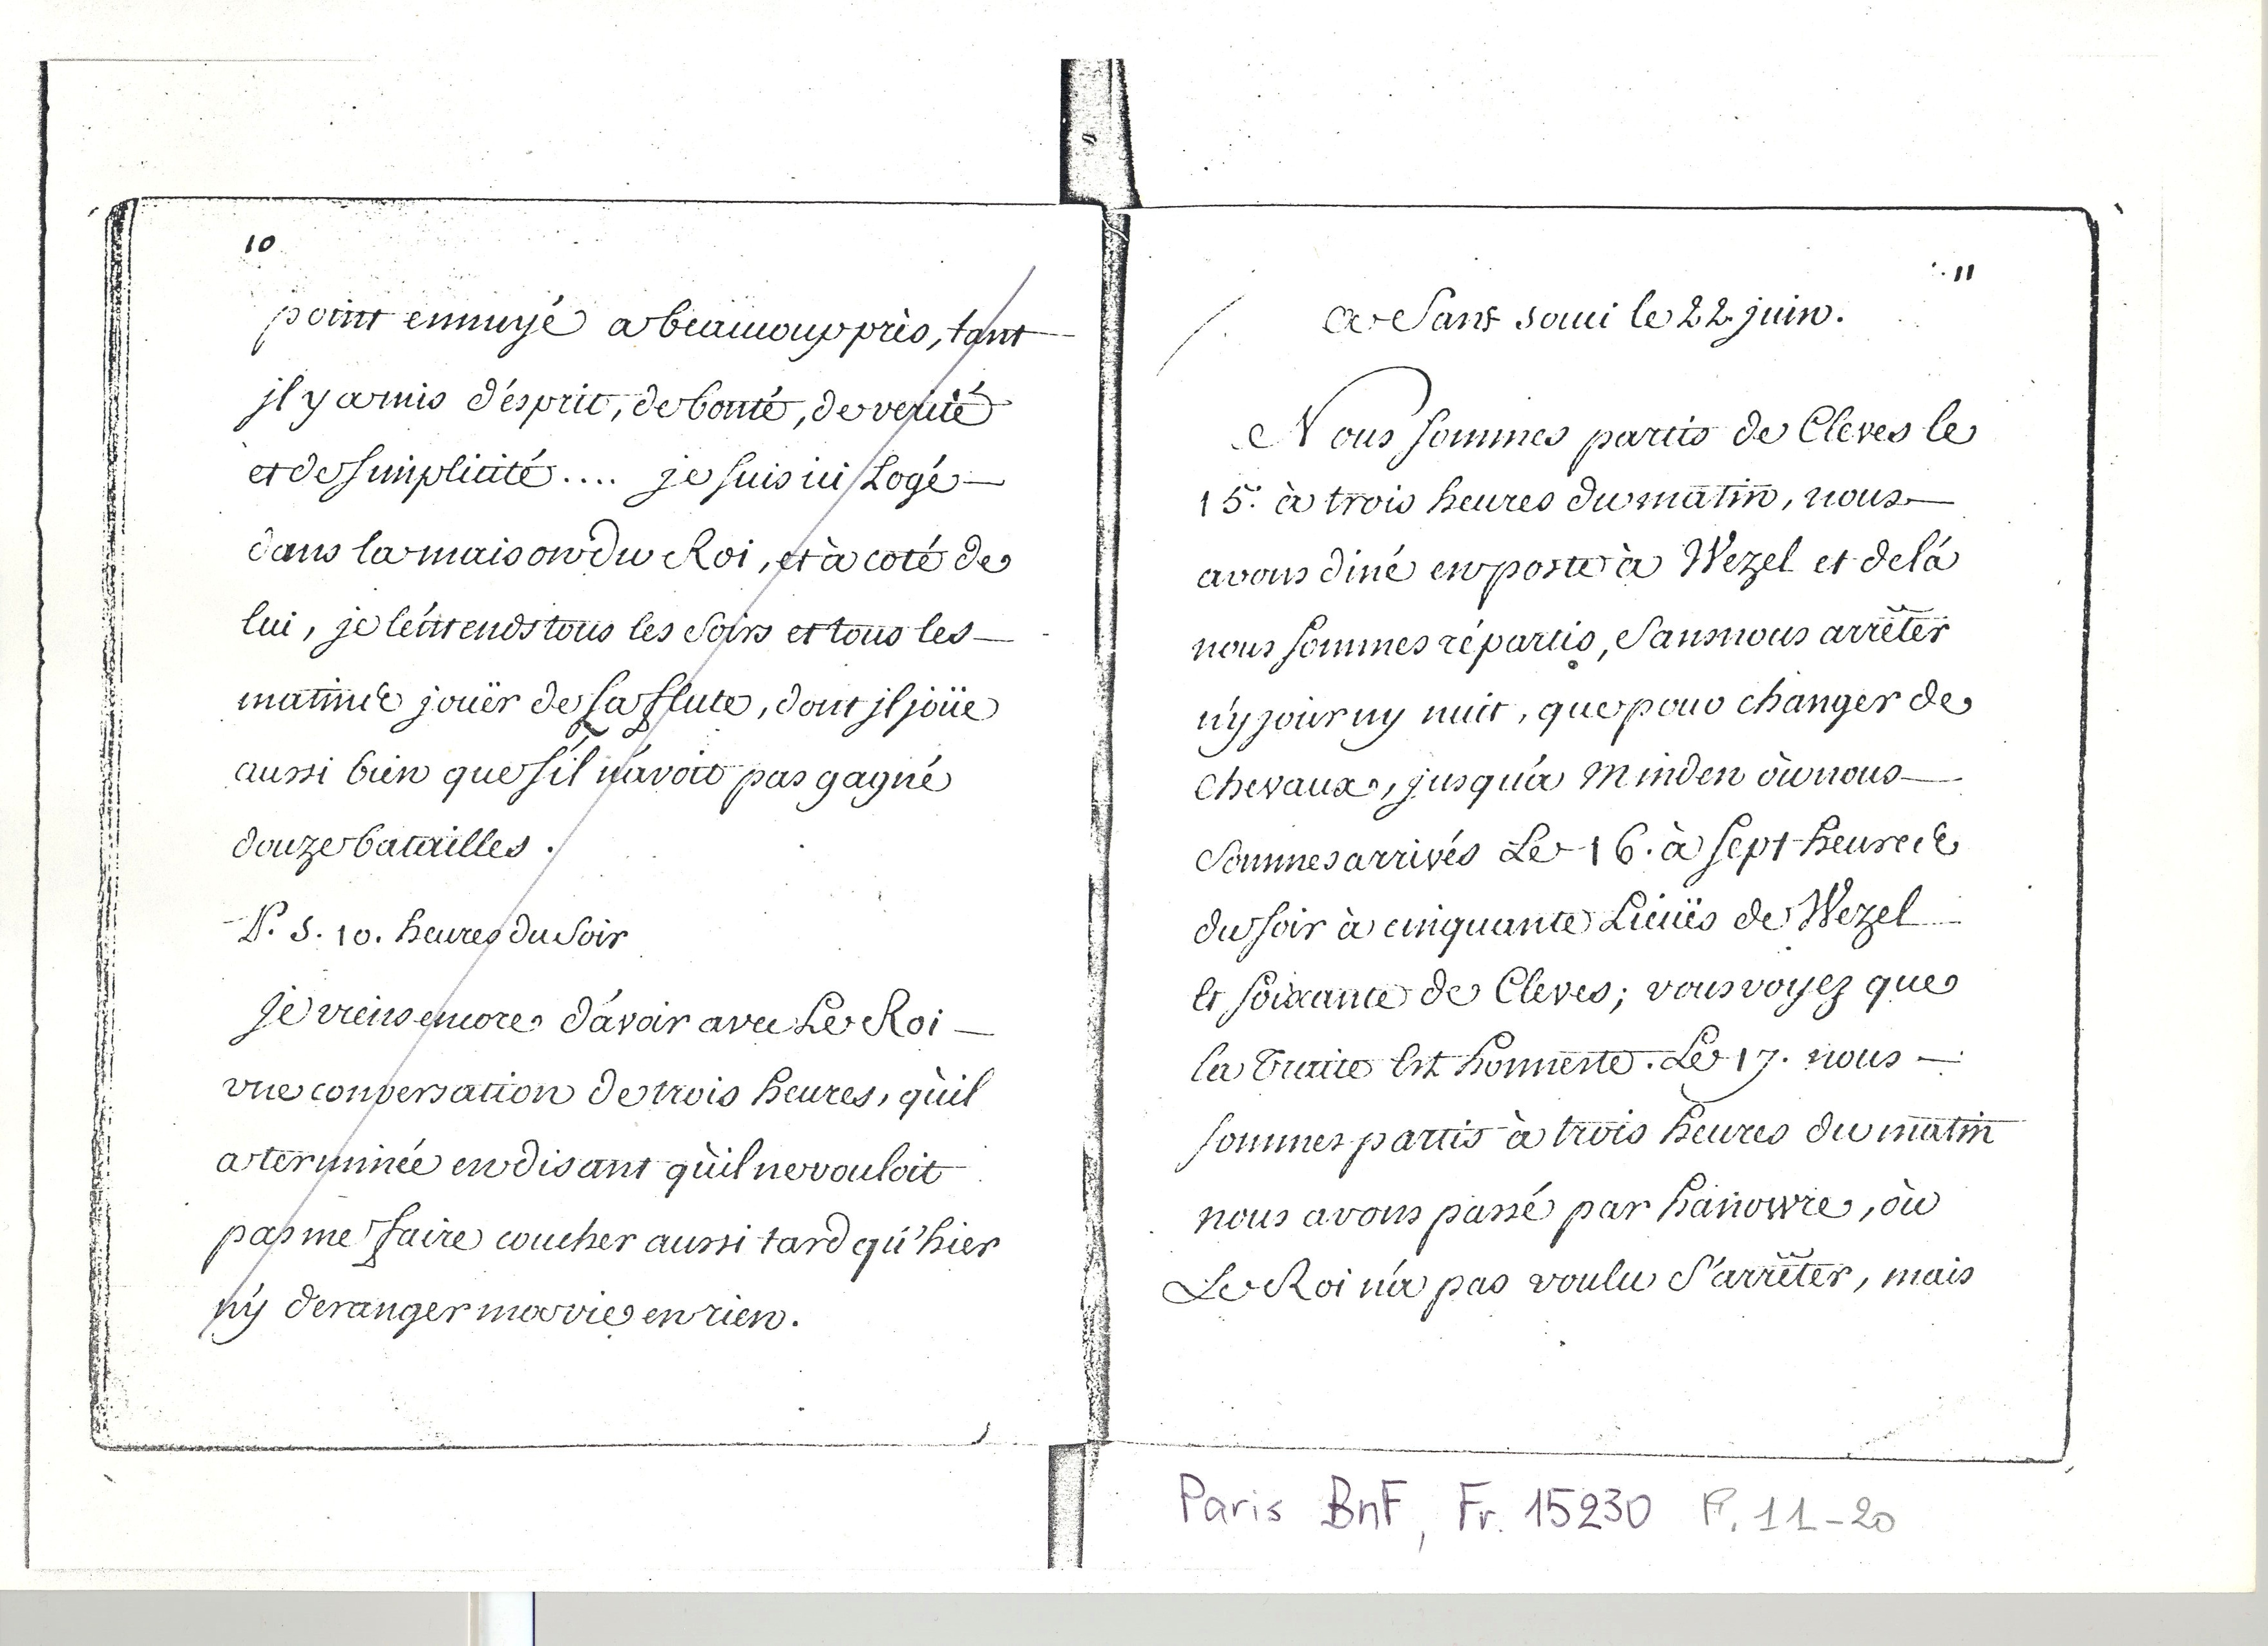 10
point ennuyé a beaucoup près, tant
jl y a mis d'ésprit, de bonté, de verité
et de simplicité.... je suis ici Logé
dans la maison du Roi, et à coté de
lui, je l'éntends tous les soirs et tous les
matinée jouër de sa flute, dont jl joüe
aussi bien que s'il n'avoit pas gagné
douze batailles.
P. S. 10. heures du soir
je viens encore d'ávoir avec Le Roi
vne conversation de trois heures, qu'il
a terminée en disant qu'il ne vouloit
pas me faire coucher aussi tard qu'hier
n'y deranger ma vie en rien.
11
a Sans souci le 22 juin.
Nous sommes partis de Cleves le
15. à trois heures du matin, nous
avons diné en poste à Wezel et delá
nous sommes répartis, sans nous arrêter
n'y jour ny nuit, que pour changer de
chevaux, jusqu'á Minden où nous
sommes arrivés Le 16. à sept heures
du soir à cinquante Lieuës de Wezel
et soixante de Cleves; vous voyez que
la Traite est honneste. Le 17. nous
sommes partis à trois heures du matin
nous avons passé par hanowre, où
Le Roi n'a pas voulu s'arrêter, mais
Paris BnF, Fr. 15230 P. 11-20